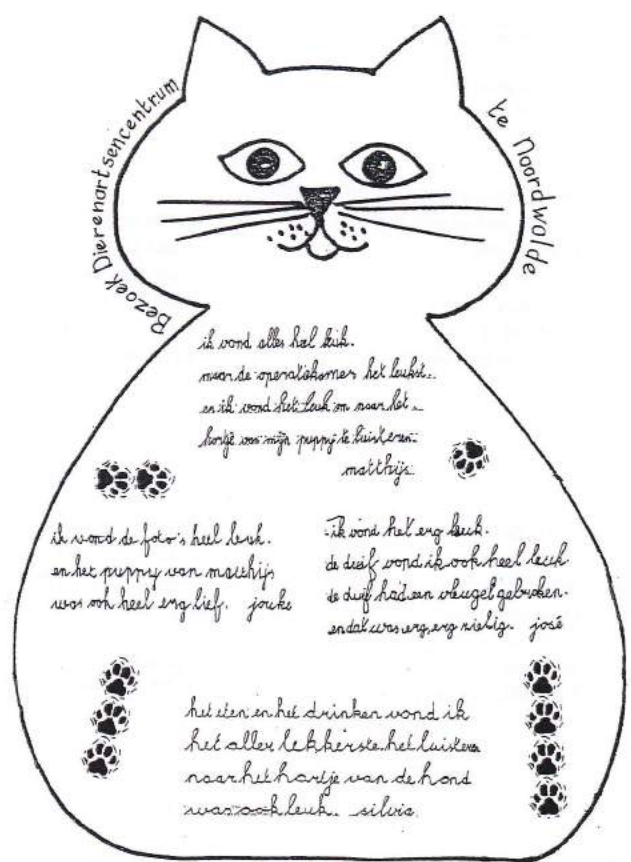 Bezoek Dierenartsencentrum
te Noordwolde
ik vond alles heel leuk.
maar de operatiekamer het leukst.
en ik vond het leuk om naar het
hartje van mijn puppy te luisteren.
matthijs
ik vond de foto's heel leuk.
en het puppy van matthijs
was ook heel erg lief. jouke
ik vond het erg leuk.
de duif vond ik ook heel leuk
de duif had een vleugel gebroken.
en dat was erg, erg zielig. josé
het eten en het drinken vond ik
het aller lekkerste. het luisteren
naar het hartje van de hond
was ook leuk. silvia.